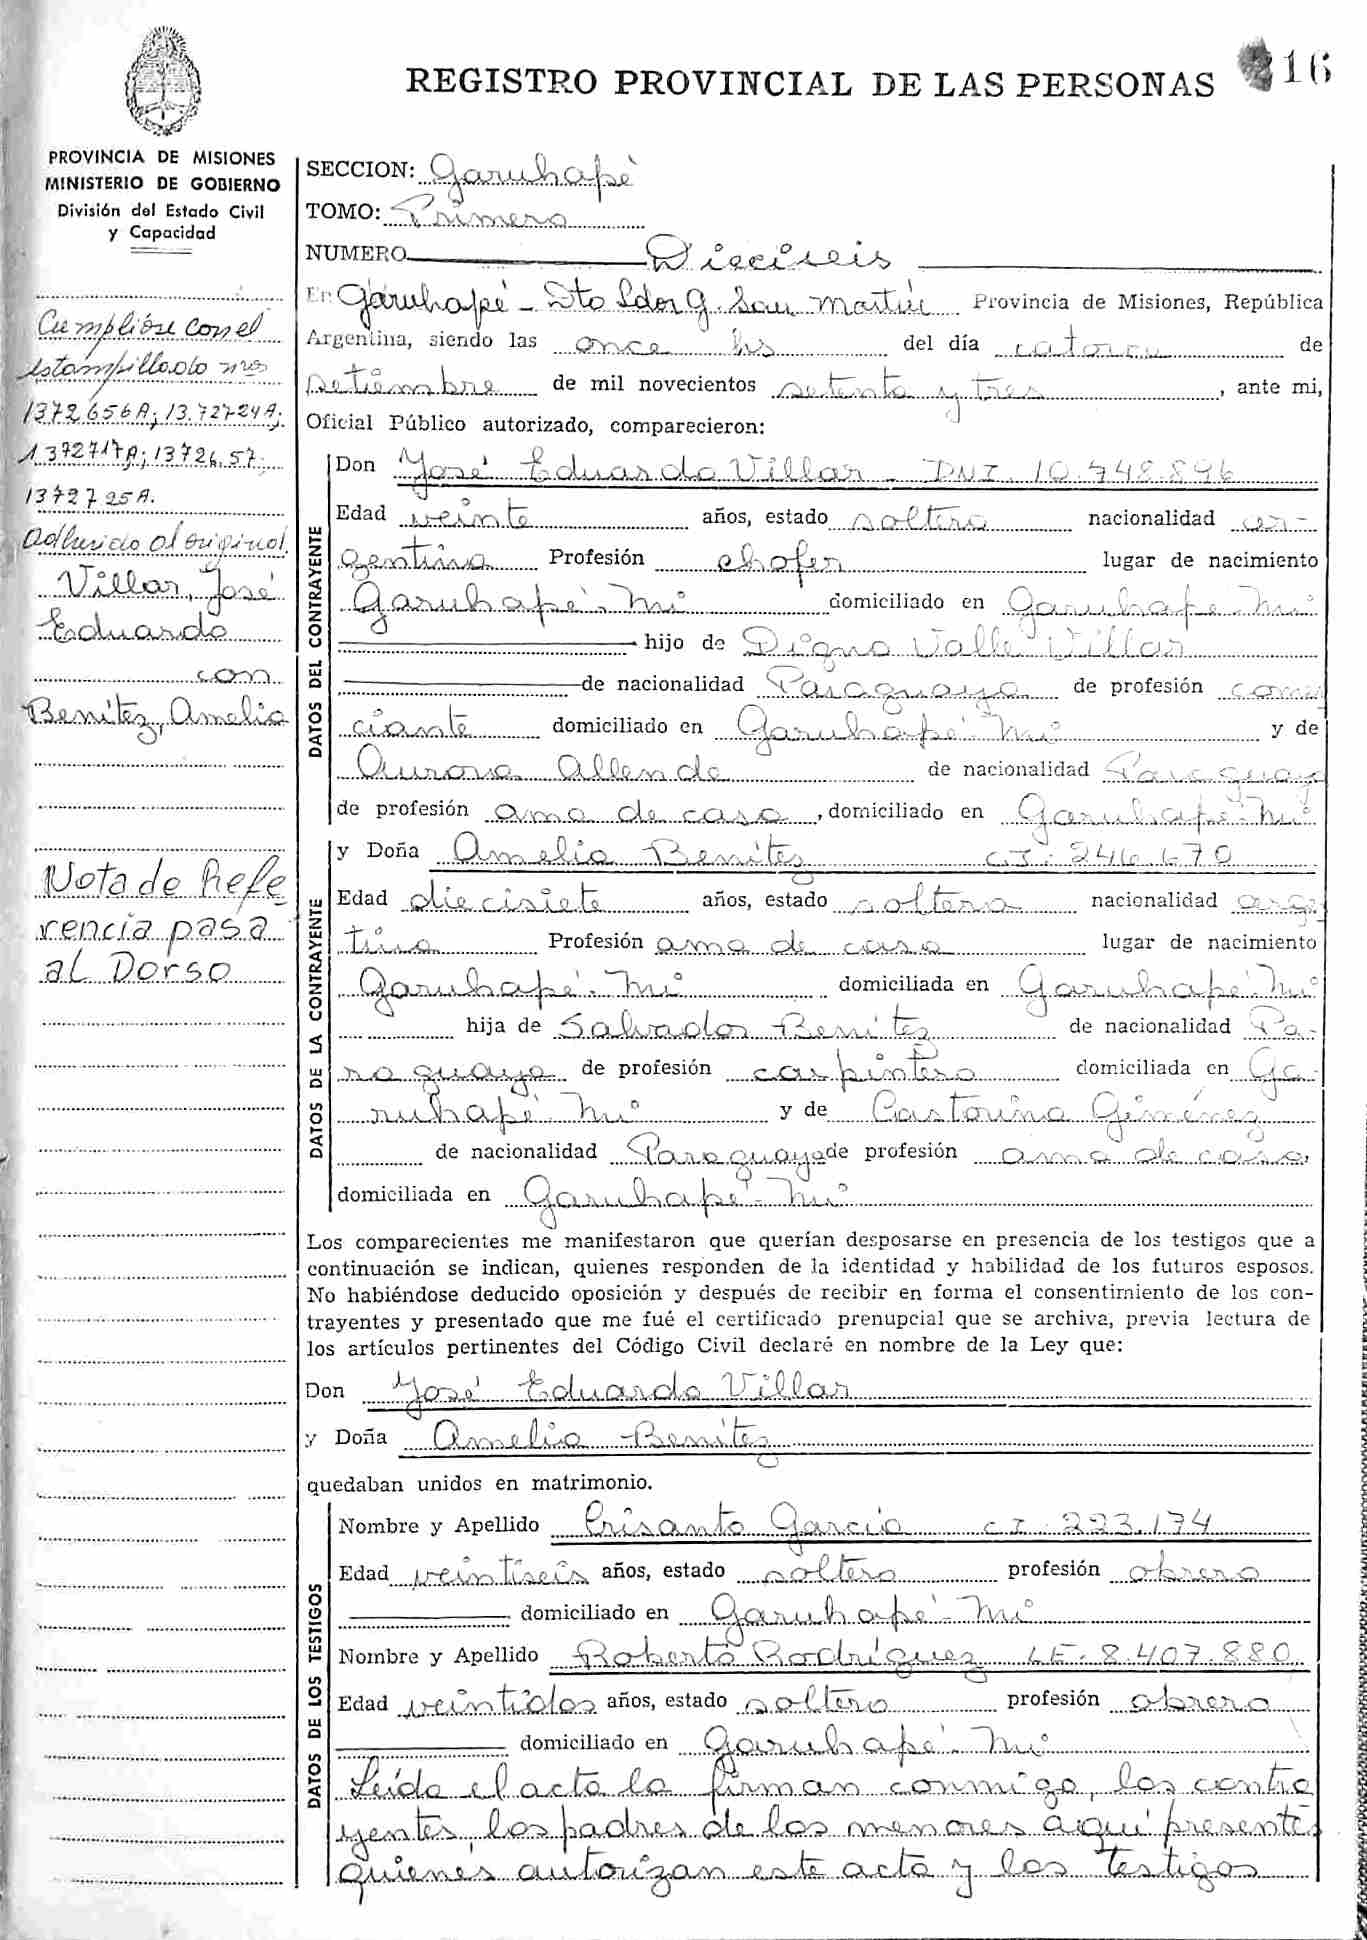 REGISTRO PROVINCIAL DE LAS PERSONAS
16
PROVINCIA DE MISIONES
MINISTERIO DE GOBIERNO
División del Estado Civil
y Capacidad
Cumplióse con el
estampillado nros
1372656A; 13.72724A;
1372717A; 13726.57
1372725A.
Adherido al original.
Villar, José
Eduardo
con
Benítez, Amelia
Nota de Refe
rencia pasa
al Dorso
SECCION: Garuhapé
TOMO: Primero
NUMERO Dieciseis
En Garuhapé - Dto Ldor G. San Martín Provincia de Misiones, República
Argentina, siendo las once hs del día catorce de
setiembre de mil novecientos setenta y tres, ante mi,
Oficial Público autorizado, comparecieron:
DATOS DEL CONTRAYENTE
Don José Eduardo Villar - DNI. 10.748.896
Edad veinte años, estado soltero nacionalidad ar-
gentina Profesión chofer lugar de nacimiento
Garuhapé. Mnes domiciliado en Garuhapé. Mnes
hijo de Digno Valle Villar
de nacionalidad Paraguaya de profesión comer
ciante domiciliado en Garuhapé. Mnes y de
Aurora Allende de nacionalidad Paraguay
de profesión ama de casa, domiciliado en Garuhapé. Mnes
DATOS DE LA CONTRAYENTE
y Doña Amelia Benítez CI. 246.670
Edad diecisiete años, estado soltera nacionalidad arge
tina Profesión ama de casa lugar de nacimiento
Garuhapé. Mnes domiciliada en Garuhapé. Mnes
hija de Salvador Benítez de nacionalidad Pa-
raguaya de profesión carpintero domiciliada en Ga-
ruhapé. Mnes y de Castorina Giménez
de nacionalidad Paraguaya de profesión ama de casa,
domiciliada en Garuhapé - Mnes
Los comparecientes me manifestaron que querían desposarse en presencia de los testigos que a
continuación se indican, quienes responden de la identidad y habilidad de los futuros esposos.
No habiéndose deducido oposición y después de recibir en forma el consentimiento de los con-
trayentes y presentado que me fué el certificado prenupcial que se archiva, previa lectura de
los artículos pertinentes del Código Civil declaré en nombre de la Ley que:
Don José Eduardo Villar
y Doña Amelia Benítez
quedaban unidos en matrimonio.
DATOS DE LOS TESTIGOS
Nombre y Apellido Crisanto García CI. 223.174
Edad veintiseis años, estado soltero profesión obrero
domiciliado en Garuhapé - Mnes
Nombre y Apellido Roberto Rodríguez LE. 8.407.880
Edad veintidos años, estado soltero profesión obrero
domiciliado en Garuhapé - Mnes
Leída el acta la firman conmigo, los contra
yentes, los padres de los menores aquí presentes
quienes autorizan este acto y los testigos